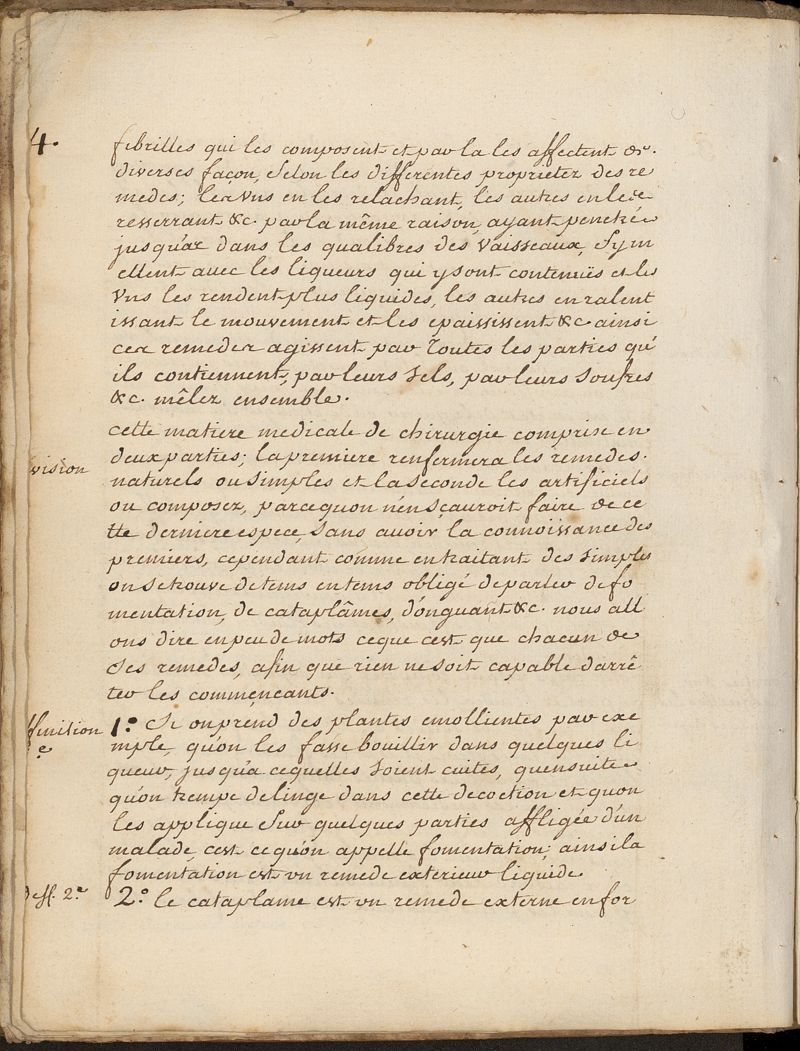 4.
fibrilles qui les composent et par la les affectent de
diverses façon, selon les differentes proprietez des re
medes; les uns en les relachant, les autres en les
resserrant &c. par la même raison, ayant penetré
jusqu'az dans les qualibres des vaisseaux, s'ym
ellent avec les liqueurs qui y sont contenuës et les
uns les rendent plus liquides, les autres en ralent
issant le mouvement et les epaississent &c ainsi
ces remedes agissent par toutes les parties qu'
ils contiennent, par leurs sels, par leurs soufres
&c. mêlez ensemble.
cette matiere medicale de chirurgie comprise en
vision
deux parties; la premiere renfermera les remedes.
naturels ou simples et la seconde les artificiels
ou composez, parce quon n'en sçauroit faire de ce
tte derniere espece, sans avoir la connoissance des
premiers, cependant comme en traitant des simples
on se trouve de tems en tems obligé de parler de fo
mentation, de cataplâmes, d'onguant &c. nous all
ons dire en peu de mots ce que c'est que chacun de
ses remedes, afin que rien ne soit capable d'arrê
ter les commençeants.
ffinition
e
1.° Si on prend des plantes emollientes par exe
mple, qu'on les fasse bouillir dans quelques li
queur, jusqu'a ce quelles soient cuites, qu'ensuite
qu'on trempe de linge dans cette decoction et quon
les applique sur quelques parties affligée d'un
malade, c'est ce qu'on appelle fomentation; ainsi la
fomentation est un remede exterieur liquide
Deff. 2.e
2.° le cataplame est un remede externe en for